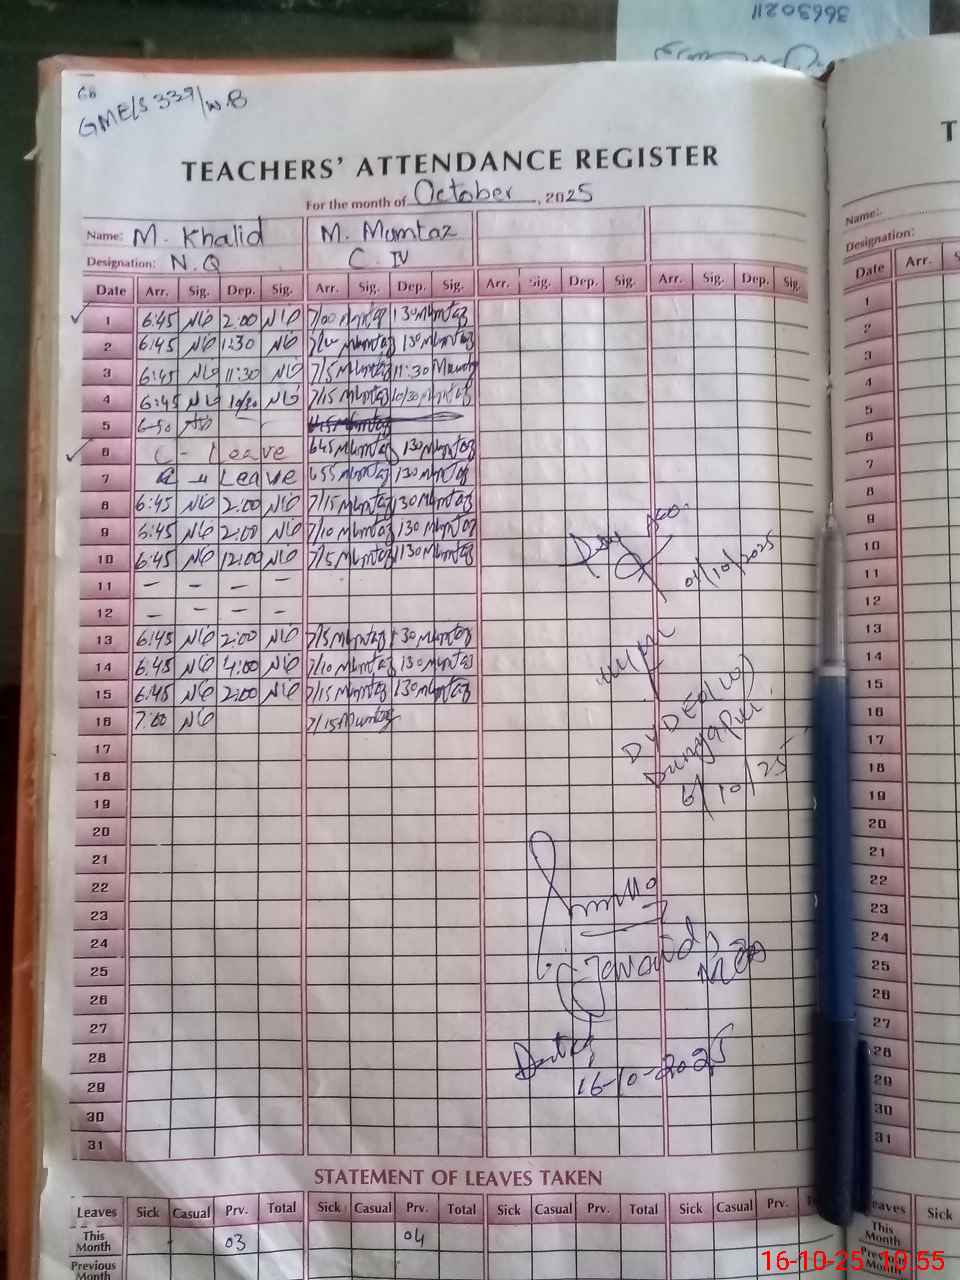 36630211
68
GMELS 339/W.B
TEACHERS' ATTENDANCE REGISTER
For the month of October, 2025
Name: M. Khalid M. Mumtaz
Designation: N.Q C. IV
Date Arr. Sig. Dep. Sig. Arr. Sig. Dep. Sig. Arr. Sig. Dep. Sig. Arr. Sig. Dep. Sig.
1 6:45 NQ 2:00 NQ 7/00 Mumtaz 130 Mumtaz
2 6:45 NQ 1:30 NQ Mumtaz 130 Mumtaz
3 6:45 NQ 11:30 NQ 7/5 Mumtaz 11:30
4 6:45 NQ 10/30 NQ 7/15 Mumtaz 10/30 Mumtaz
5 6-50
6 C - Leave 645 Mumtaz 130 Mumtaz
7 C " Leave 655 Mumtaz 130 Mumtaz
8 6:45 NQ 2:00 NQ 7/15 Mumtaz 130 Mumtaz
9 6:45 NQ 2:00 NQ 7/10 Mumtaz 130 Mumtaz
10 6:45 NQ 12:00 NQ 7/5 Mumtaz 130 Mumtaz
11 - - - -
12 - - - -
13 6:45 NQ 2:00 NQ 7/5 Mumtaz 130 Mumtaz
14 6:45 NQ 4:00 NQ 7/10 Mumtaz 130 Mumtaz
15 6:45 NQ 2:00 NQ 7/15 Mumtaz 130 Mumtaz
16 7:00 NQ 7/15 Mumtaz
17
18
19
20
21
22
23
24
25
26
27
28
29
30
31
01/10/2025
Dy DEO(W)
Dunyapur
6/10/25
Dated
16-10-2025
STATEMENT OF LEAVES TAKEN
Leaves Sick Casual Prv. Total Sick Casual Prv. Total Sick Casual Prv. Total Sick Casual Prv.
This Month 03 04
Previous Month
T
Name:
Designation:
Date Arr.
1
2
3
4
5
6
7
8
9
10
11
12
13
14
15
16
17
18
19
20
21
22
23
24
25
26
27
28
29
30
31
eaves Sick
This Month
Previous Month
16-10-25, 10.55